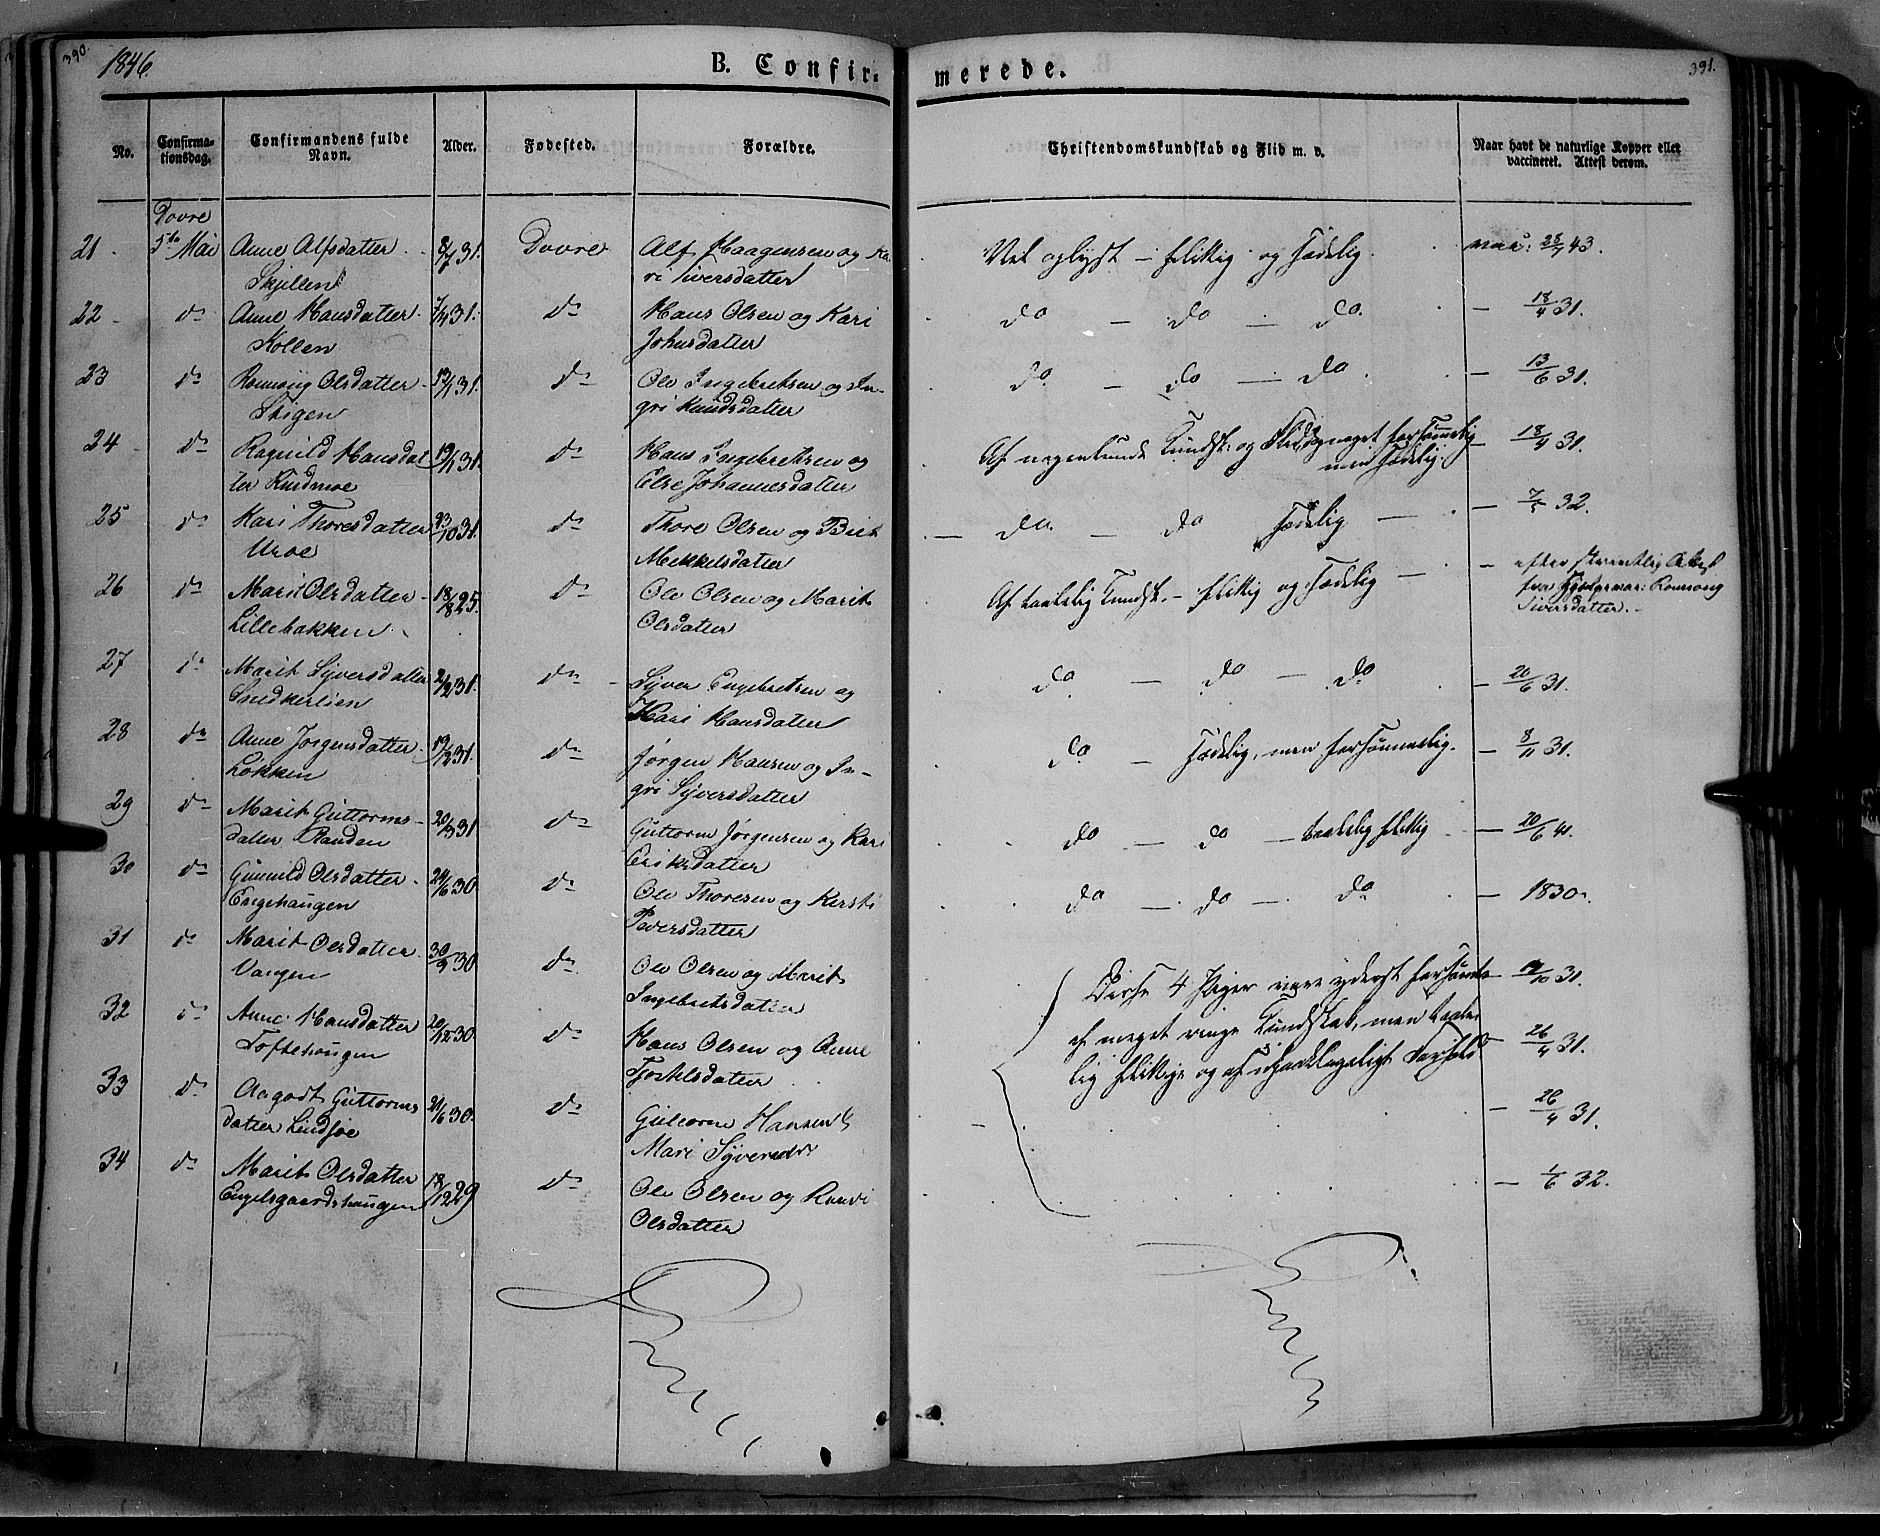 390.
1846.
B. Confir-
merede.
391.
No.
Confirma-
tionsdag.
Confirmandens fulde
Navn.
Alder.
Fødested.
Forældre.
Christendomskundskab og Flid m. v.
Naar havt de naturlige Kopper eller
vaccineret. Attest derom.
Dovre
21. 5te Mai Anne Alfsdatter 8/7 31. Dovre Alf Haagensen og Ka- Vel oplyst - flittig og sædelig. vac: 28/7 43.
Skjellen ri Siversdatter
22 do Anne Hansdatter 7/4 31. do Hans Olsen og Kari do - do - do. - 18/4 31.
Kollen Johnsdatter
23 do Rønnøug Olsdatter 12/1 31. do Ole Ingebretsen og In- do - do - do. - 13/6 31.
Stigen gri Knudsdatter
24 do Ragnild Hansdat 19/1 31. do Hans Ingebretsen og Af nogenlunde Kundsk: og Flid og noget forsømmelig - 18/4 31.
ter Rudmoe Else Johannesdatter men sædelig.
25 do Kari Thoresdatter 23/10 31. do Thore Olsen og Brit - do. - do sædelig - - 7/5 32.
Uroe Mekkelsdatter
26 do Marit Olsdatter 18/8 25. do Ole Olsen og Marit Af taalelig Kundsk. - flittig og sædelig - - efter skrevtlig Attest
Lillebakken. Olsdatter fra Rønnoug
Siversdatter.
27 do Marit Syversdatter 2/2 31. do Syver Engebretsen og do - do - do - 20/6 31.
Snedkerlien Kari Hansdatter
28 do Anne Jørgensdatter 19/2 31. do Jørgen Hansen og In- do - sædelig, men forsømmelig. - 8/11 31.
Løkken gri Syversdatter
29 do Marit Guttorms- 20/3 31 do Guttorm Jørgensen og Kari do - do - taalelig flittig - 20/6 41.
datter Randen Eriksdatter
30 do Gunnild Olsdatter 24/6 30 do Ole Thoresen og Kersti do - do - do - 1830.
Engehaugen Peversdatter
31 do Marit Olsdatter 30/9 30 do Ole Olsen og Marit Disse 4 Piger vare yderst forsømte - 10/10 31.
Vangen Ingebretsdatter
32 do Anne Hansdatter 20/12 30. do Hans Olsen og Anne af meget ringe Kundskab, men taale- 26/4 31.
Toftehaugen Tjostelsdatter lig flittige og af upaaklageligt Forhold
33 do Aagodt Guttorms 21/6 30. do Guttorm Hansen & - 26/4 31.
datter Lindsøe Mari Syversdr
34 do Marit Olsdatter 18/12 29 do Ole Olsen og Randi - 1/6 32.
Engelsgaardshaugen Olsdatter